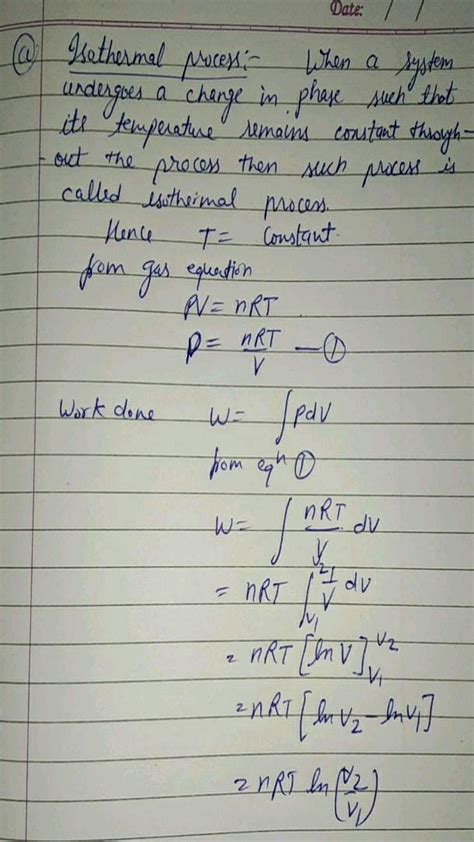 Date: / /
(a) Isothermal process:- When a system
undergoes a change in phase such that
its temperature remains constant through-
-out the process then such process is
called isothermal process.
Hence T = Constant.
from gas equation
PV = nRT
P = nRT/V — ①
Work done W = ∫PdV
from eqⁿ ①
W = ∫ nRT/V dV
= nRT ∫_V₁^V₂ 1/V dV
= nRT [ln V]_V₁^V₂
= nRT [ln V₂ - ln V₁]
= nRT ln(V₂/V₁)